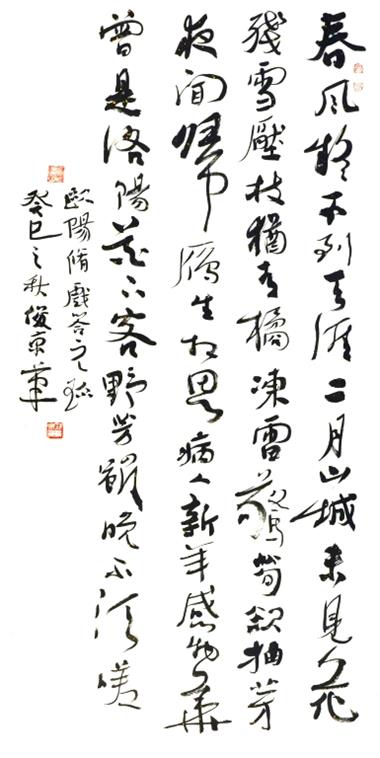 春風疑不到天涯二月山城未見花
殘雪壓枝猶有橘凍雷驚筍欲抽芽
夜聞歸雁生相思病入新年感物華
曾是洛陽花下客野芳雖晚不須嗟
歐陽脩戲答元珍
癸巳之秋俊京